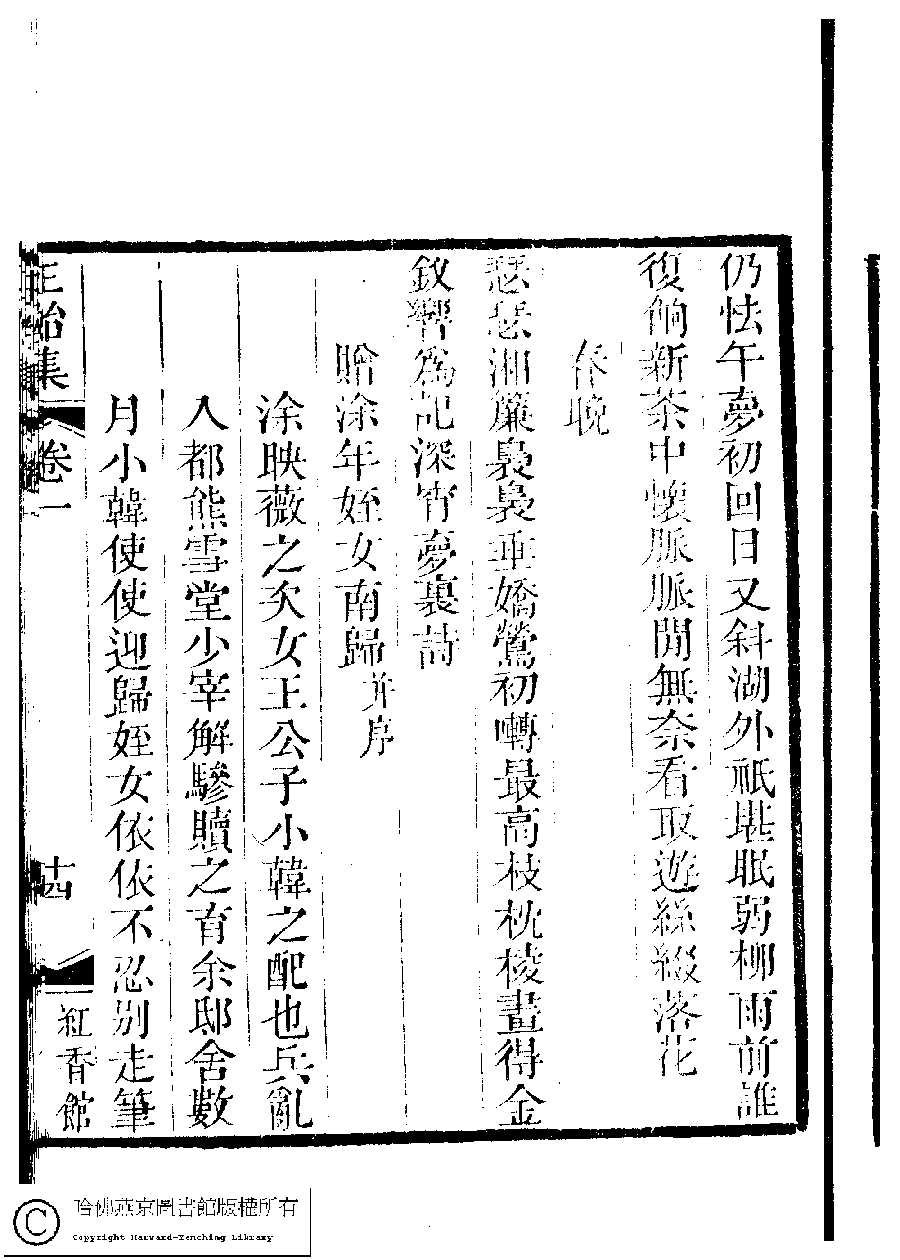 仍怯午夢初回日又斜湖外祗堪眠弱柳雨前誰
復餉新茶中懷脈脈閒無奈看取遊絲綴落花
春晚
瑟瑟湘簾裊裊垂嬌鶯初囀最高枝枕棱畫得金
釵響爲記深宵夢裏詩
贈涂年姪女南歸并序
涂映薇之次女王公子小韓之配也兵亂
入都熊雪堂少宰解驂贖之育余邸舍數
月小韓使使迎歸姪女依依不忍別走筆
正始集
卷一
十四
紅香館
哈佛燕京圖書館版權所有
Copyright Harvard-Yenching Library